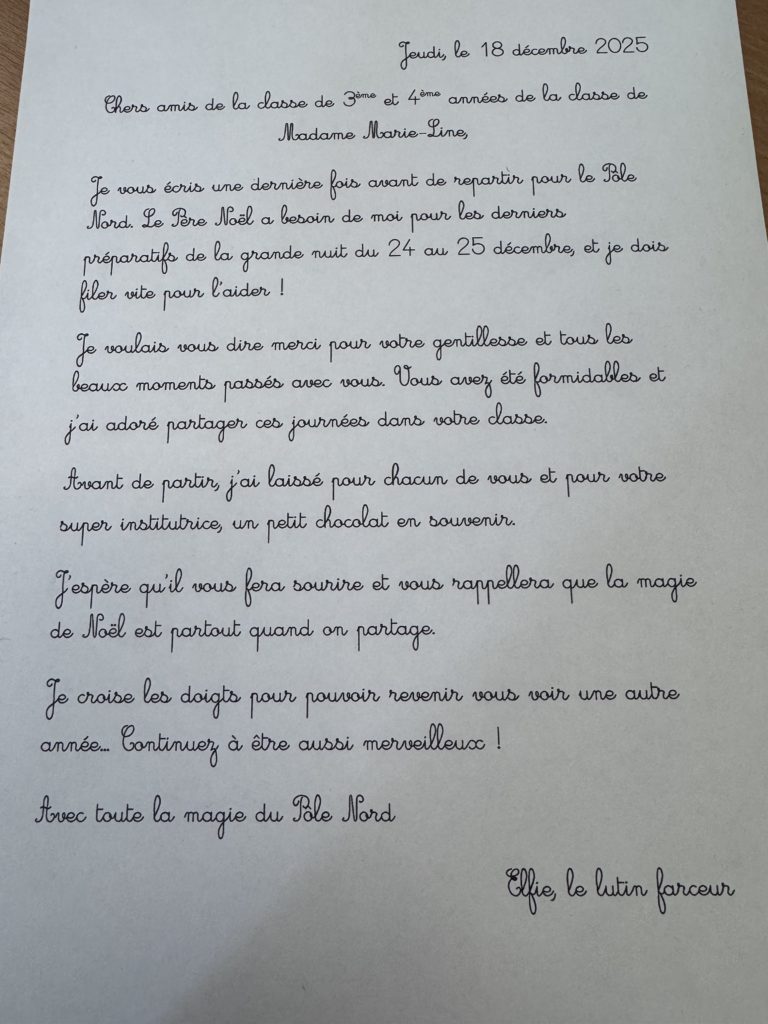 Jeudi, le 18 décembre 2025
Chers amis de la classe de 3ème et 4ème années de la classe de
Madame Marie-Line,
Je vous écris une dernière fois avant de repartir pour le Pôle
Nord. Le Père Noël a besoin de moi pour les derniers
préparatifs de la grande nuit du 24 au 25 décembre, et je dois
filer vite pour l'aider !
Je voulais vous dire merci pour votre gentillesse et tous les
beaux moments passés avec vous. Vous avez été formidables et
j'ai adoré partager ces journées dans votre classe.
Avant de partir, j'ai laissé pour chacun de vous et pour votre
super institutrice, un petit chocolat en souvenir.
J'espère qu'il vous fera sourire et vous rappellera que la magie
de Noël est partout quand on partage.
Je croise les doigts pour pouvoir revenir vous voir une autre
année... Continuez à être aussi merveilleux !
Avec toute la magie du Pôle Nord
Elfie, le lutin farceur